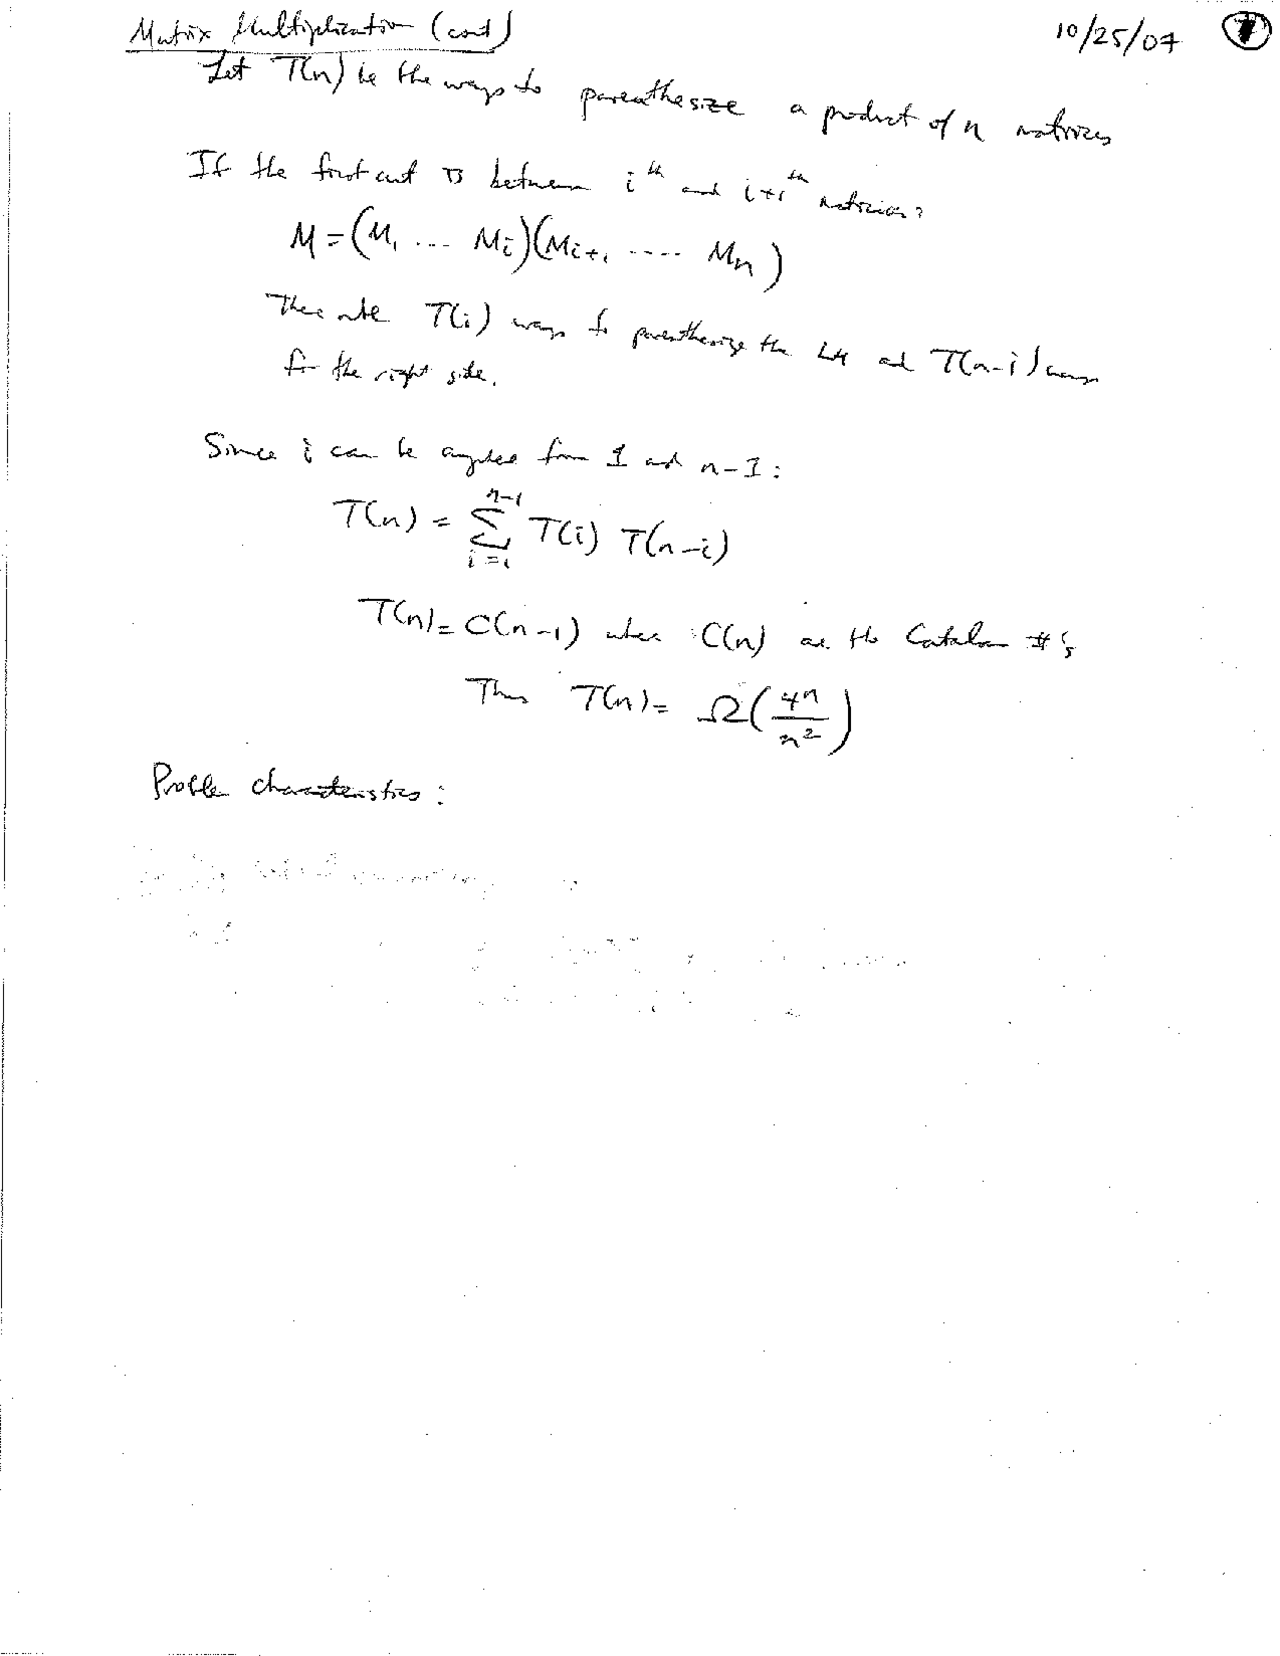 Matrix Multiplication (cont) 10/25/07 7
Let T(n) be the ways to parenthesize a product of n matrices
If the first cut is between i^th and i+1^th matrices:
M = (M_1 ... M_i)(M_i+1 .... M_n)
There are T(i) ways to parenthesize the LH and T(n-i) ways
for the right side.
Since i can be anyplace from 1 and n-1:
T(n) = Σ_{i=1}^{n-1} T(i) T(n-i)
T(n) = C(n-1) where C(n) are the Catalan #'s
Thus T(n) = Ω(4^n / n^2)
Proble characteristics: